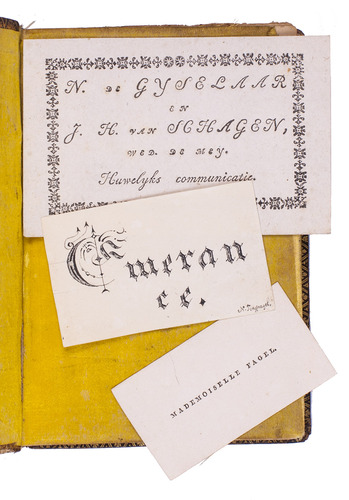 N. DE GYSELAAR
EN
J. H. VAN SCHAGEN,
WED. DE MEY.
Huwelyks communicatie.
Emeran
cé.
MADEMOISELLE FAGEL.